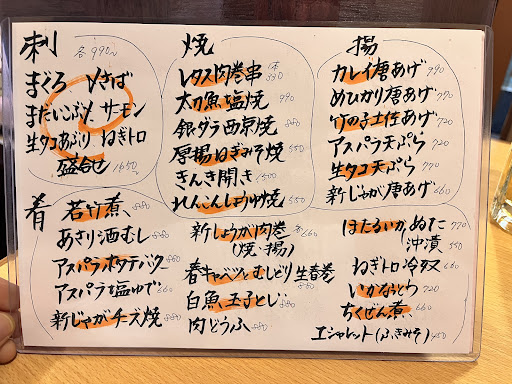 刺 各990~
まぐろ 〆さば
まだいこぶ〆 サーモン
生タコあぶり ねぎトロ
盛合せ 1650~
焼
レタス肉巻串 1本 330
太刀魚塩焼 990
銀ダラ西京焼 880
厚揚ねぎみそ焼 550
きんき開き 1500
れんこんしょうゆ焼 550
揚
カレイ唐あげ 990
めひかり唐あげ 770
竹の子土佐あげ 720
アスパラ天ぷら 720
生タコ天ぷら 770
新じゃが唐あげ 660
肴
若竹煮 880
あさり酒むし 880
アスパラホタテバター 880
アスパラ塩ゆで 660
新じゃがチーズ焼 880
新しょうが肉巻 各660
(焼・揚)
春キャベツとむしどり生春巻 880
白魚玉子とじ 880
肉どうふ 880
ほたるいか ぬた 770
沖漬 550
ねぎトロ冷奴 660
いかなっとう 720
ちくぜん煮 660
エシャレット(ふきみそ) 450